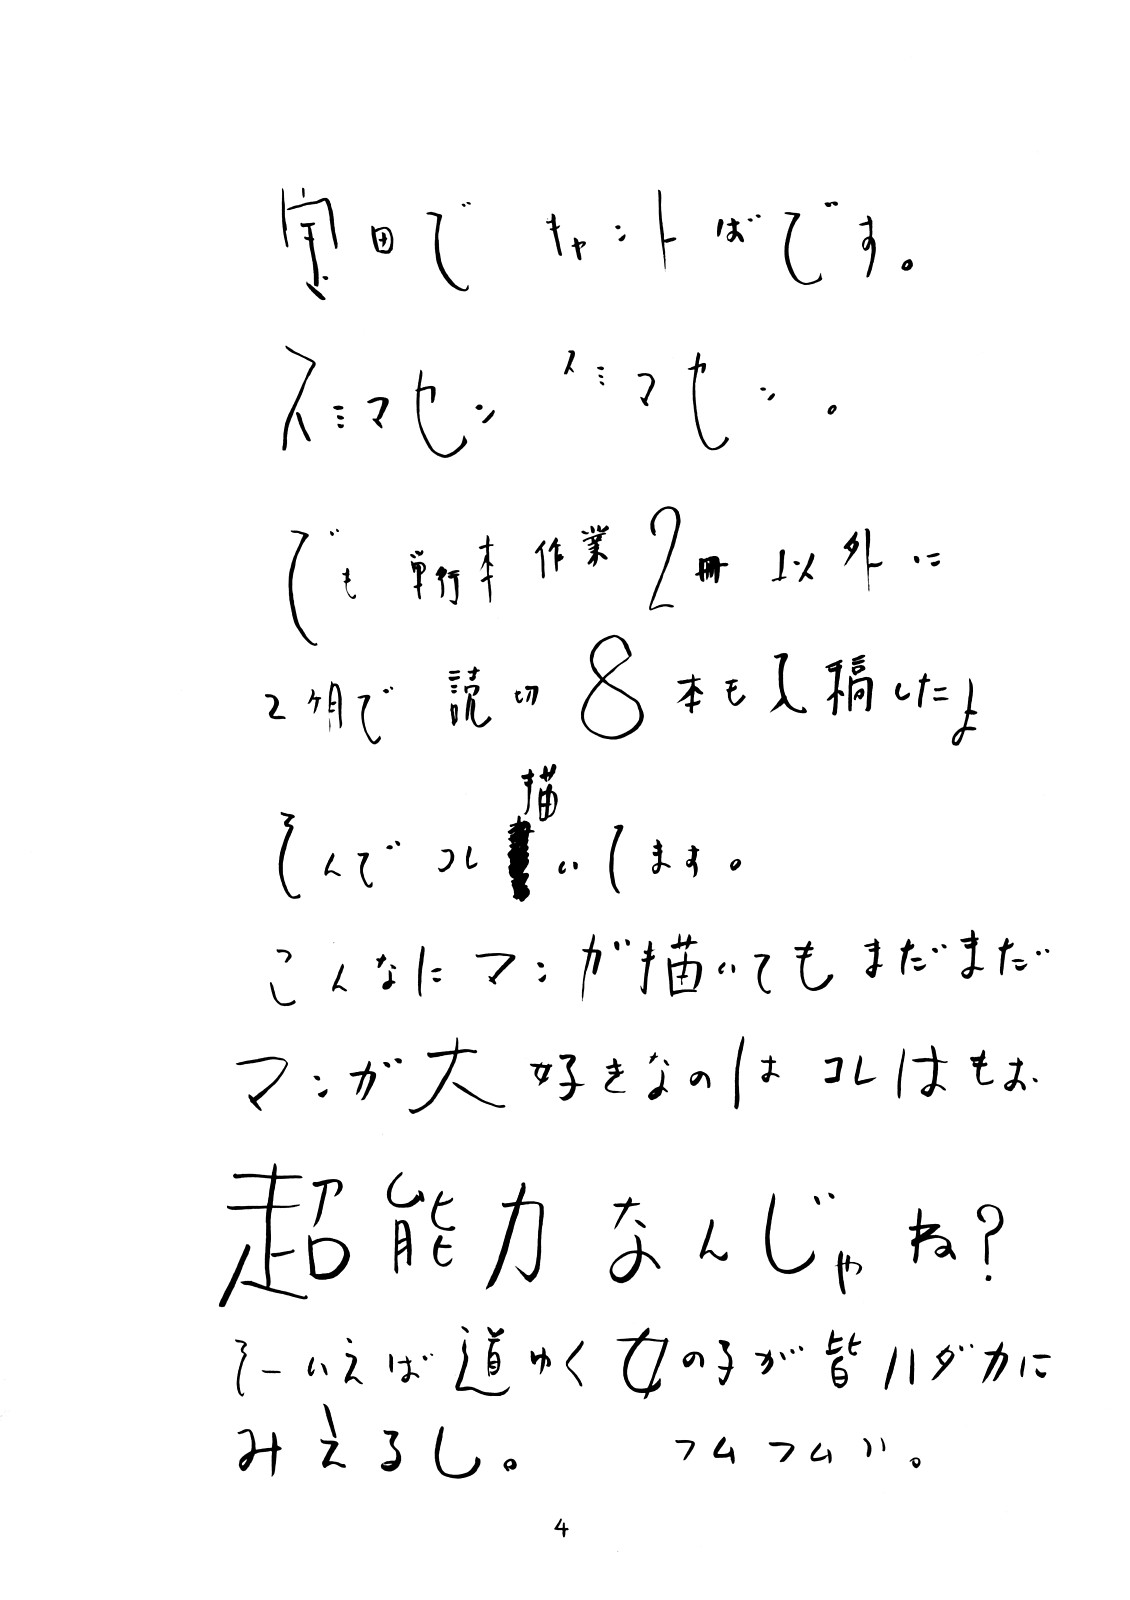 室田で キャントばです。
スミマセン スミマセン。
でも単行本作業2冊以外に
2ヶ月で読切8本も入稿したよ
そんでコレ描いてます。
こんなにマンガ描いてもまだまだ
マンガ大好きなのは コレはもお
超能力なんじゃね?
そーいえば道ゆく女の子が皆ハダカに
みえるし。 フムフム〃。
4